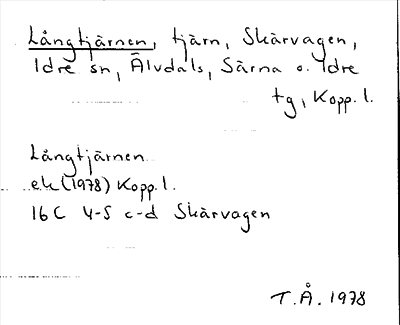 Långtjärnen, tjärn, Skärvagen,
Idre sn, Älvdals, Särna o. Idre
tg, Kopp. l.
Långtjärnen
ek (1978) Kopp. l.
16 C 4-5 c-d Skärvagen
T.Å. 1978